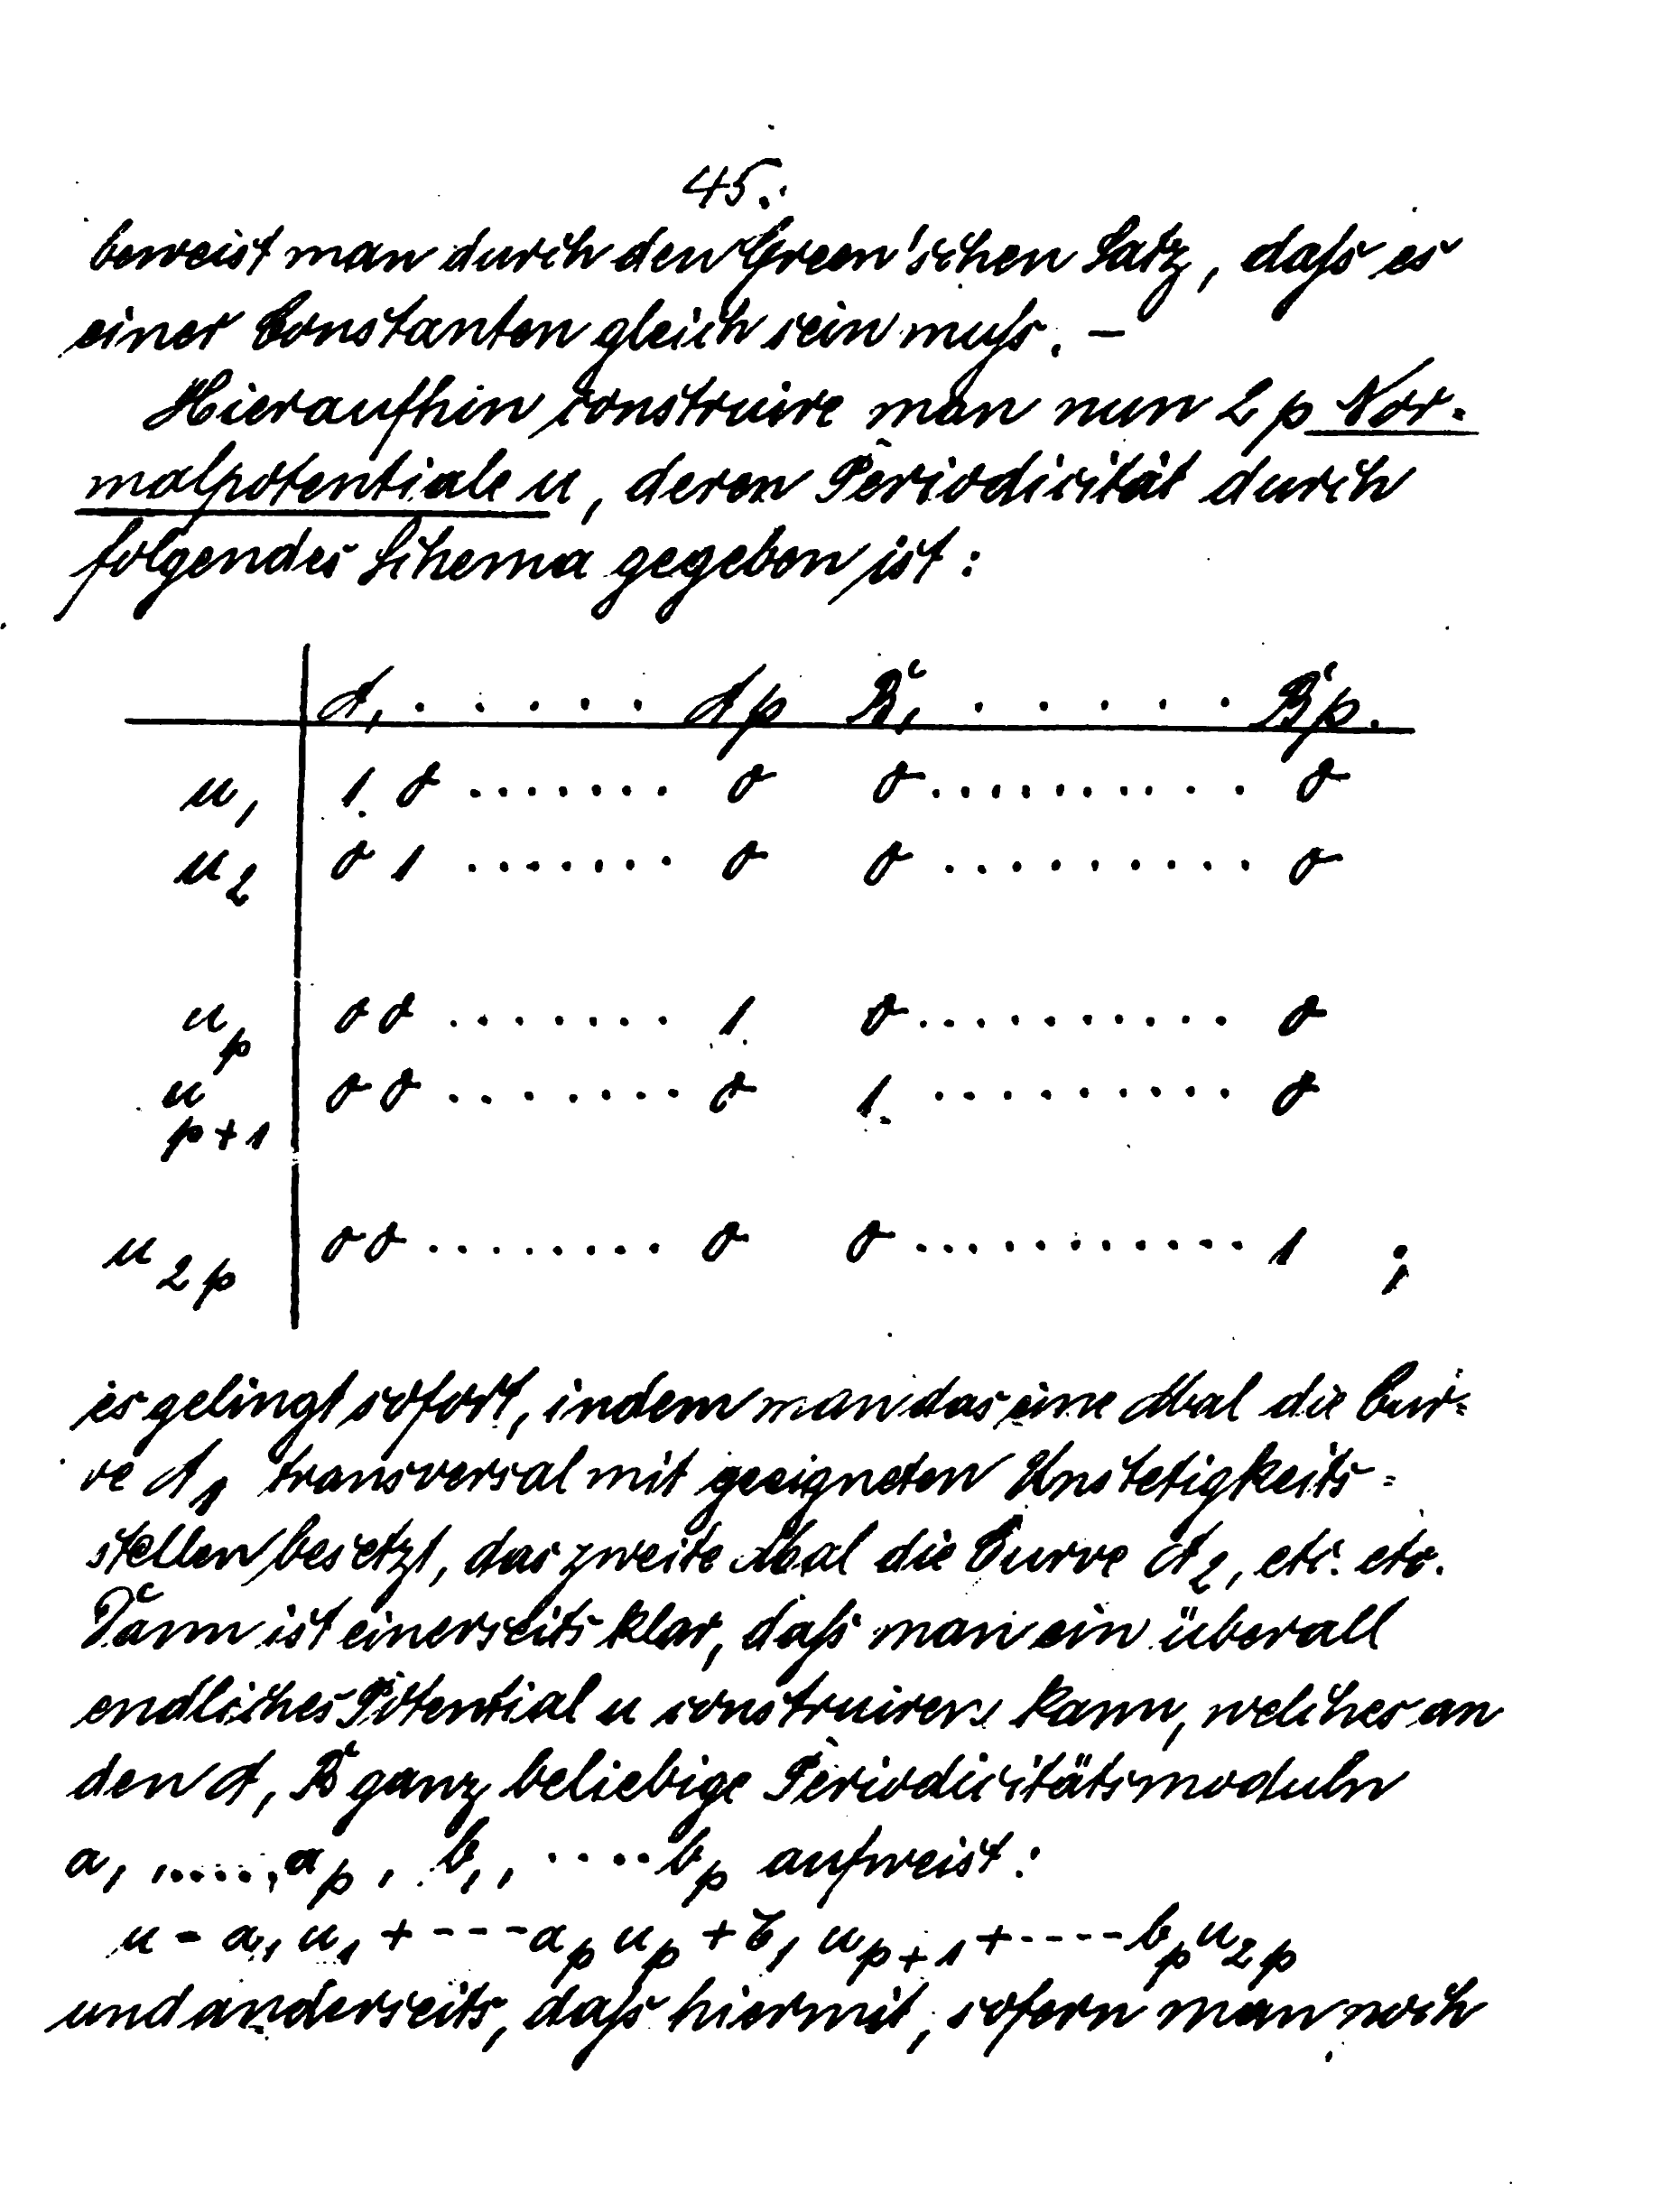 45.
beweist man durch den Green'schen Satz, daſs es
einer Constanten gleich sein muſs. —
Hieraufhin construire man nun 2p Nor-
malpotentiale u, deren Periodicität durch
folgendes Schema gegeben ist:
A₁ . . . . . Ap B₁ . . . . . Bp.
u₁ 1 0 ....... 0 0 .......... 0
u₂ 0 1 ....... 0 0 ......... 0
u_p 0 0 ....... 1 0 .......... 0
u_{p+1} 0 0 ....... 0 1 ......... 0
u_{2p} 0 0 ........ 0 0 ........... 1 ;
es gelingt sofort, indem man das eine Mal die Cur-
ve A₁ transversal mit geeigneten Unstetigkeits-
stellen besetzt, das zweite Mal die Curve A₂, etc. etc.
Dann ist einerseits klar, daſs man ein überall
endliches Potential u construiren kann, welches an
den A, B ganz beliebige Periodicitätsmoduln
a₁, ....., a_p, b₁, ....b_p aufweist:
u = a₁u₁ + ---a_p u_p + b₁ u_{p+1} + ----b_p u_{2p}
und anderseits, daſs hiermit, sofern man noch